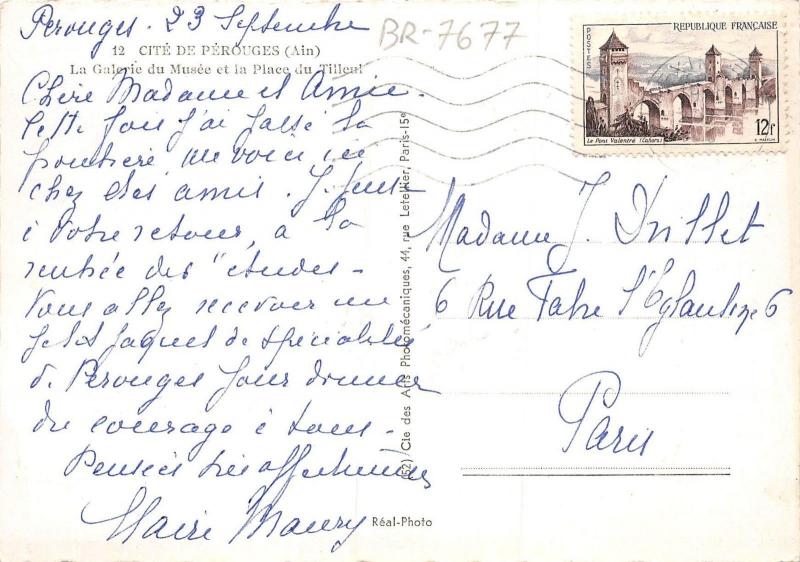 Perouges. 23 Septembre
BR-7677
12 CITÉ DE PÉROUGES (Ain)
La Galerie du Musée et la Place du Tilleul
Chère Madame et Amie.
Cette fois j'ai passé la
frontière me voici ici
chez des amis. Je pense
à votre retour, à la
rentrée des "études-
Vous allez recevoir un
petit paquet de spécialités
de Perouges pour donner
du courage à tous-
Pensées très affectueuses
Claire Maury
(52) Cie des Arts Photomécaniques, 44, rue Letellier, Paris-15e
Réal-Photo
POSTES
REPUBLIQUE FRANÇAISE
12f
Le Pont Valentré (Cahors)
Madame J.
6 Rue Fabre l'Eglantine 6
Paris